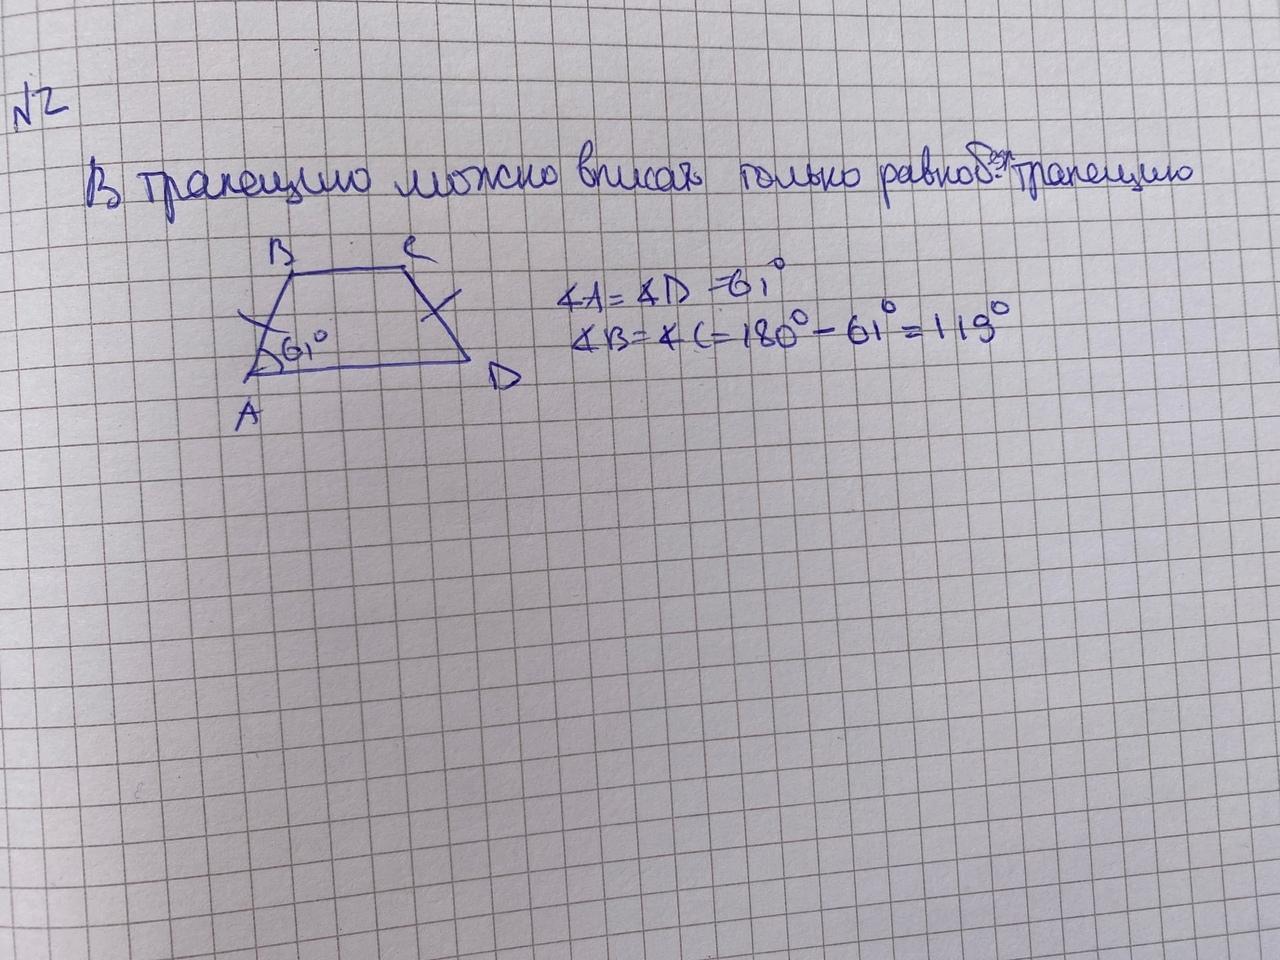 №2
В трапецию можно вписать только равноб. трапецию
B C
61°
A D
∢A = ∢D = 61°
∢B = ∢C = 180° - 61° = 119°